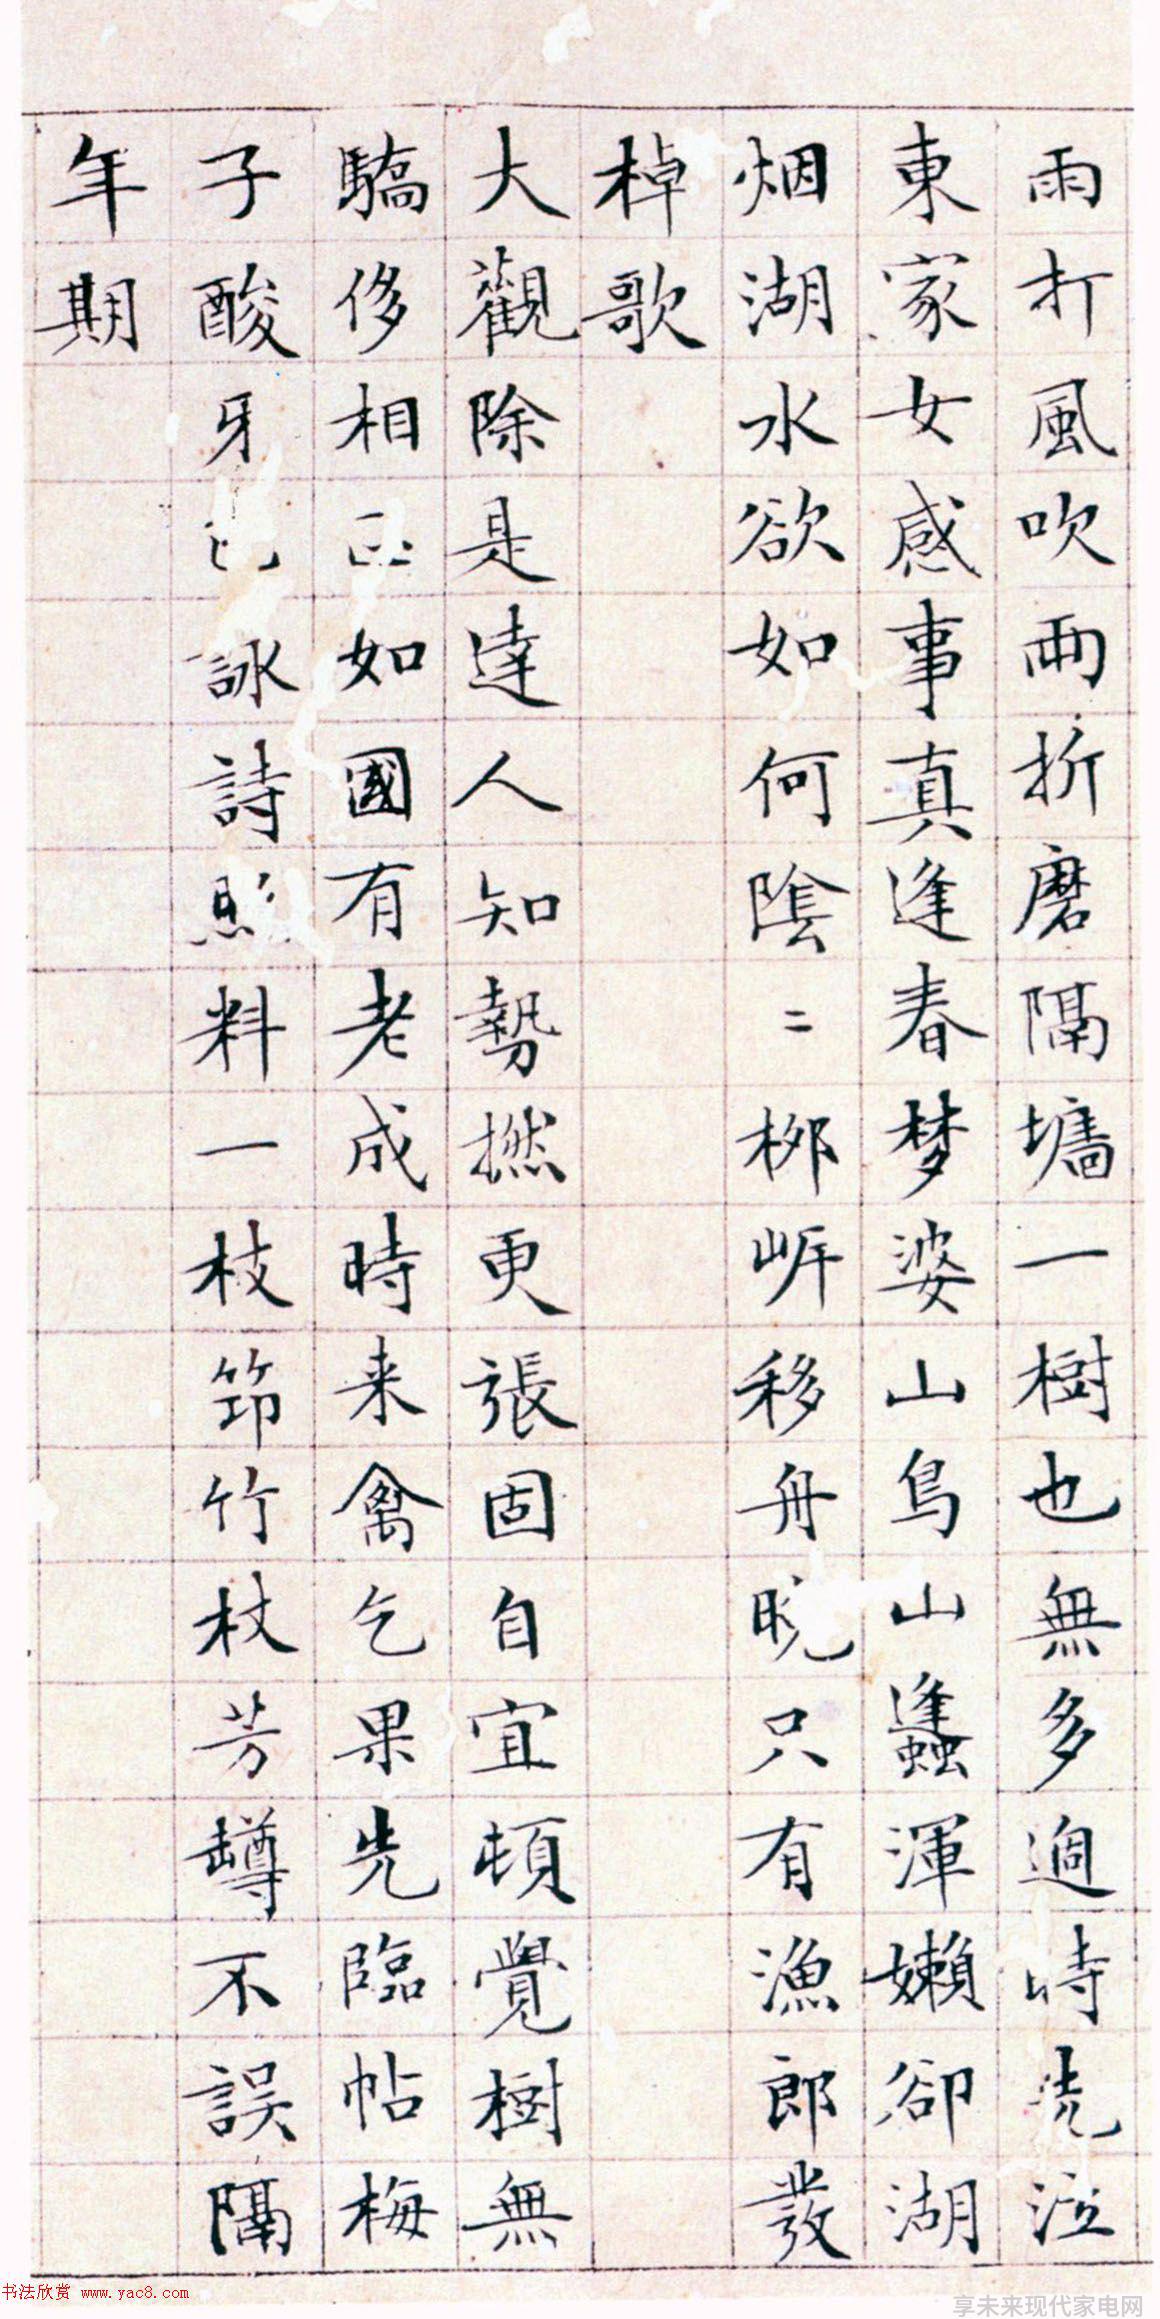 雨打風吹兩折磨隔墻一樹也無多過時泣
東家女感事真逢春梦婆山鳥山蠭渾嬾卻湖
烟湖水欲如何陰二柳岍移舟晚只有漁郎發
棹歌
大觀除是達人知勢撚更張固自宜頓覺樹無
驕侈相如國有老成時来禽乞果先臨帖梅
子酸牙詠詩照料一枝筇竹杖芳罇不誤隔
年期
书法欣赏 www.yac8.com
享未来现代家电网